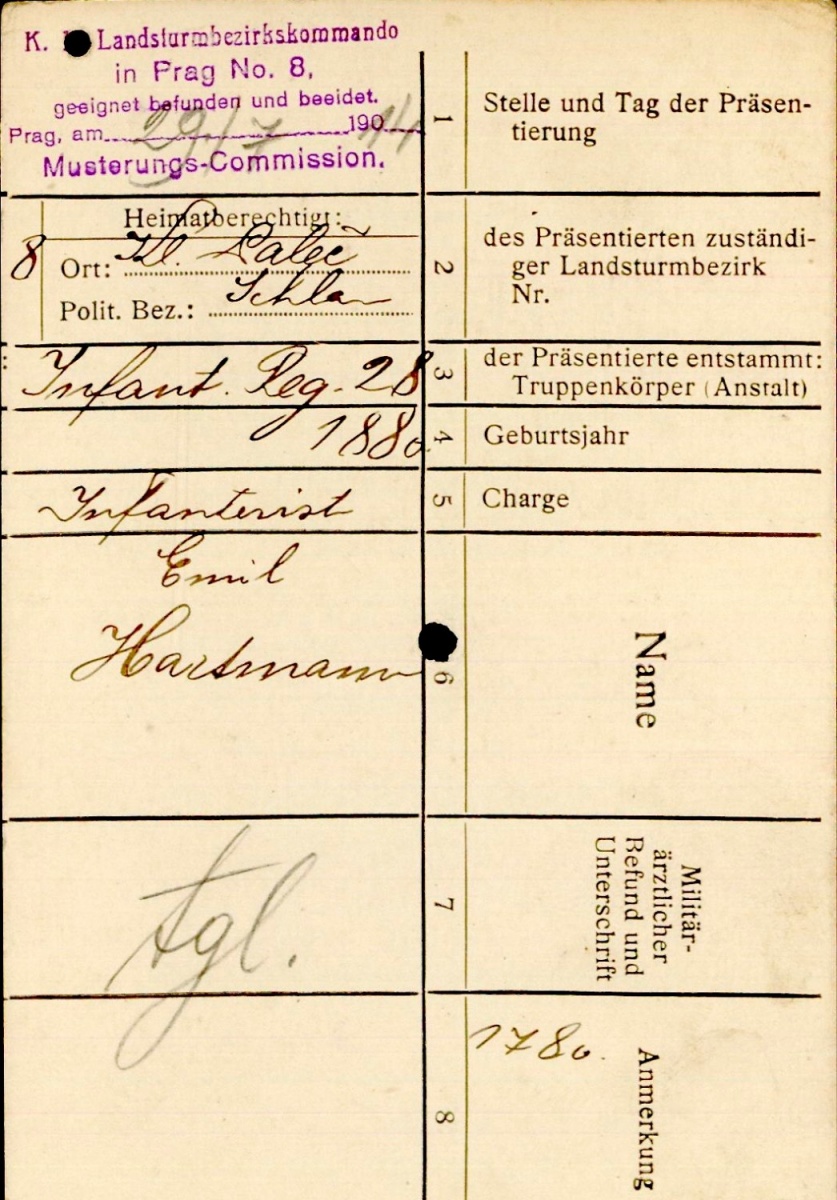 K. Landsturmbezirkskommando
in Prag No. 8,
geeignet befunden und beeidet.
Prag, am 29/7 190 14
Musterungs-Commission.
1
Stelle und Tag der Präsen-
tierung
Heimatberechtigt:
8
Ort: Kl. Paleč
Polit. Bez.: Schlan
2
des Präsentierten zuständi-
ger Landsturmbezirk
Nr.
Infant. Reg. 28
3
der Präsentierte entstammt:
Truppenkörper (Anstalt)
1880
4
Geburtsjahr
Infanterist
5
Charge
Emil
Hartmann
6
Name
tgl.
7
Militär-
ärztlicher
Befund und
Unterschrift
8
1780.
Anmerkung